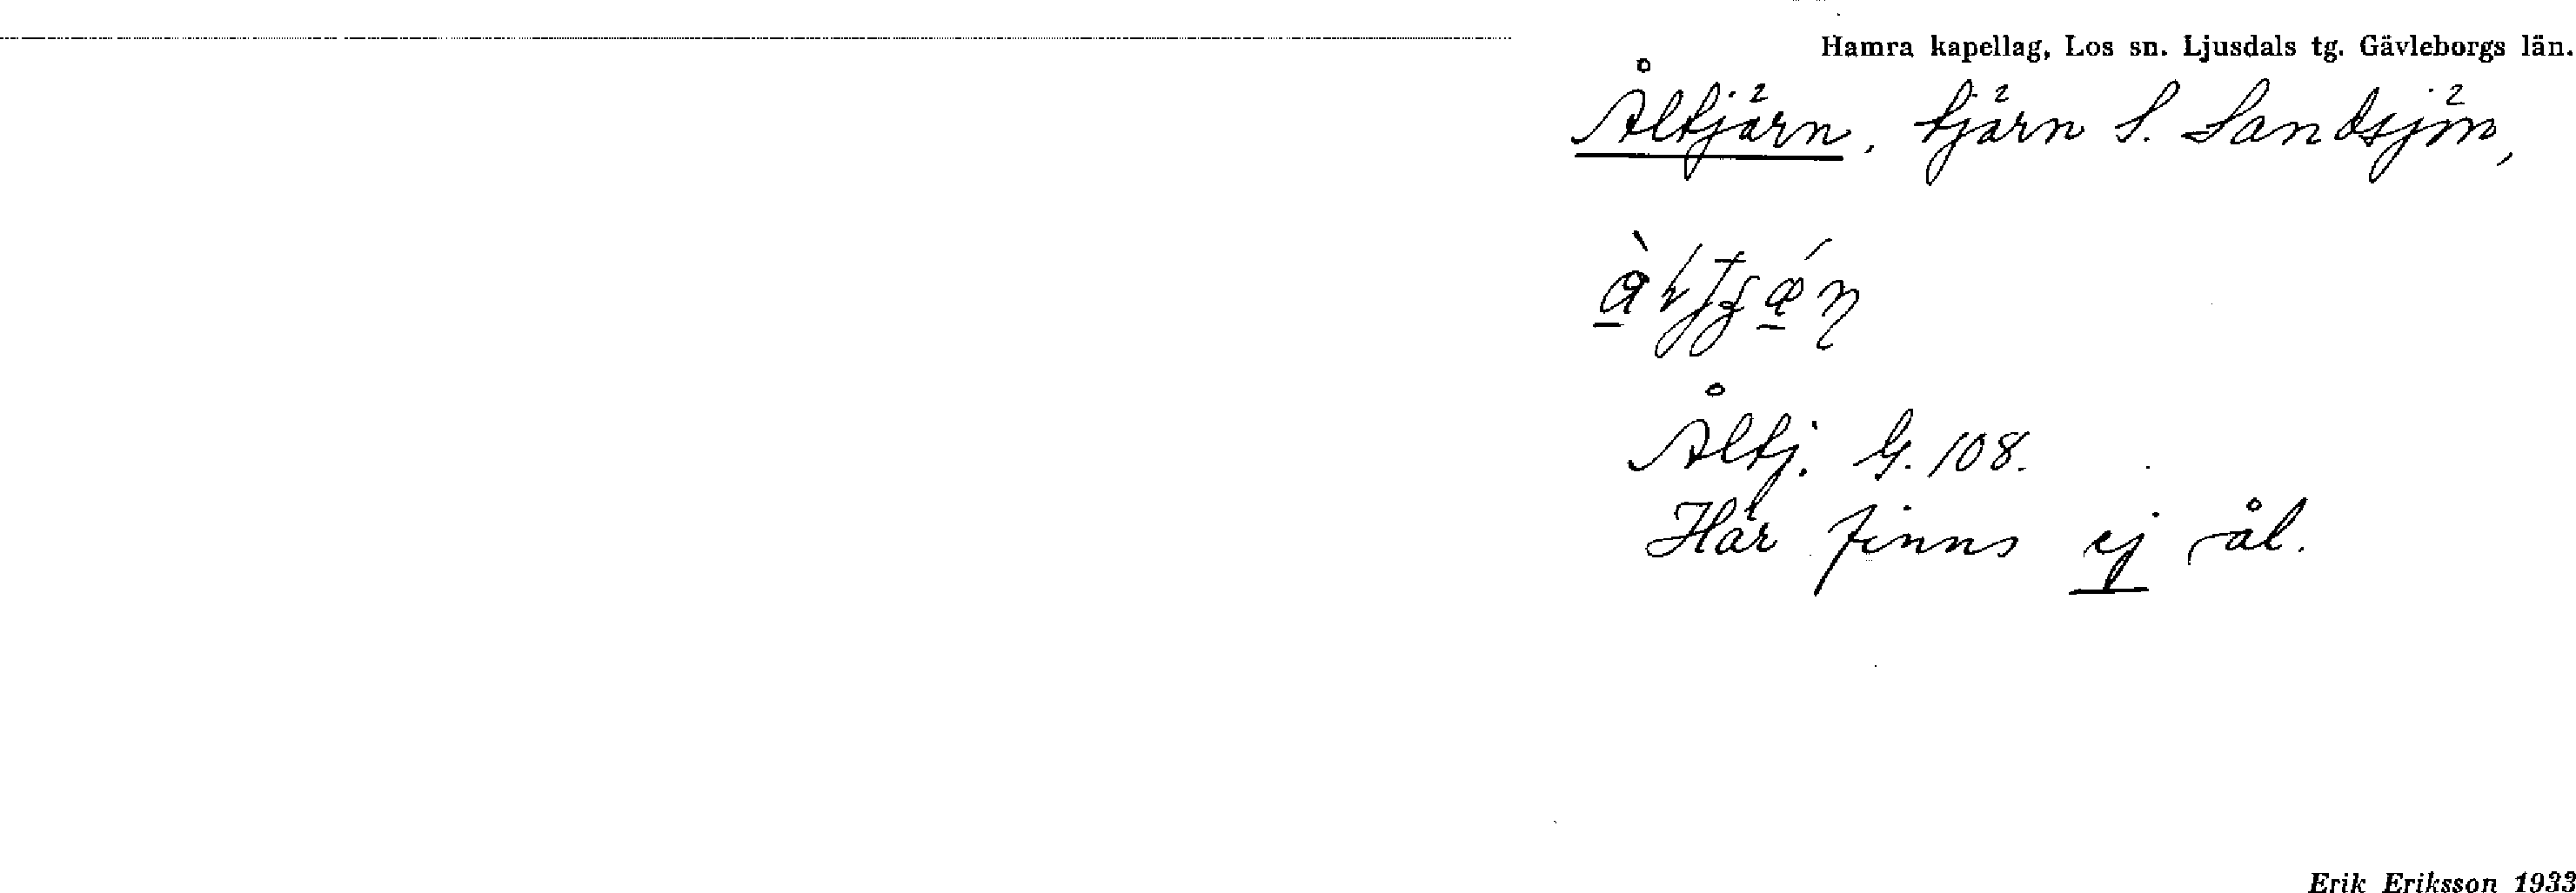 Hamra kapellag, Los sn. Ljusdals tg. Gävleborgs län.
Åltjärn, tjärn S. Sandsjön,
Åltj. G. 108.
Här finns ej ål.
Erik Eriksson 1933